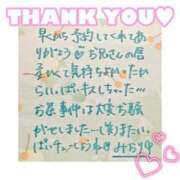 THANK YOU♡
早から予約してくれてあ
りがとう お兄さんの唇
柔くて気持ちよかったか
らいっぱいキスしちゃった…
お茶事件は大変お騒
がせしました…(笑)またい
っぱいチューしようね
みおり